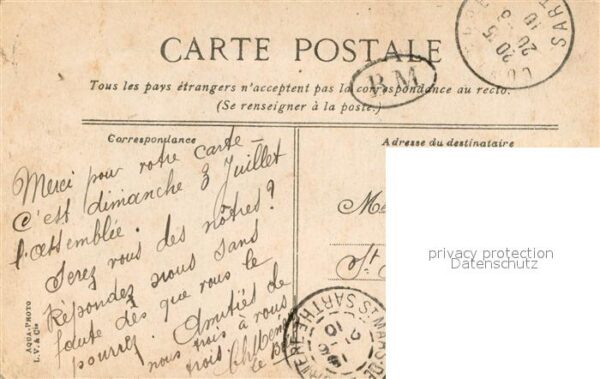 CARTE POSTALE
B.M.
Tous les pays étrangers n'acceptent pas la correspondance au recto.
(Se renseigner à la poste.)
Correspondance
Adresse du destinataire
Merci pour votre carte -
C'est dimanche 3 Juillet
l'assemblée.
Serez vous des nôtres?
Répondez nous sans
faute dès que vous le
pourrez. Amitiés de
nous trois à vous
trois.
privacy protection
Datenschutz
AQUA-PHOTO
L.V. & Cie
SARTHE